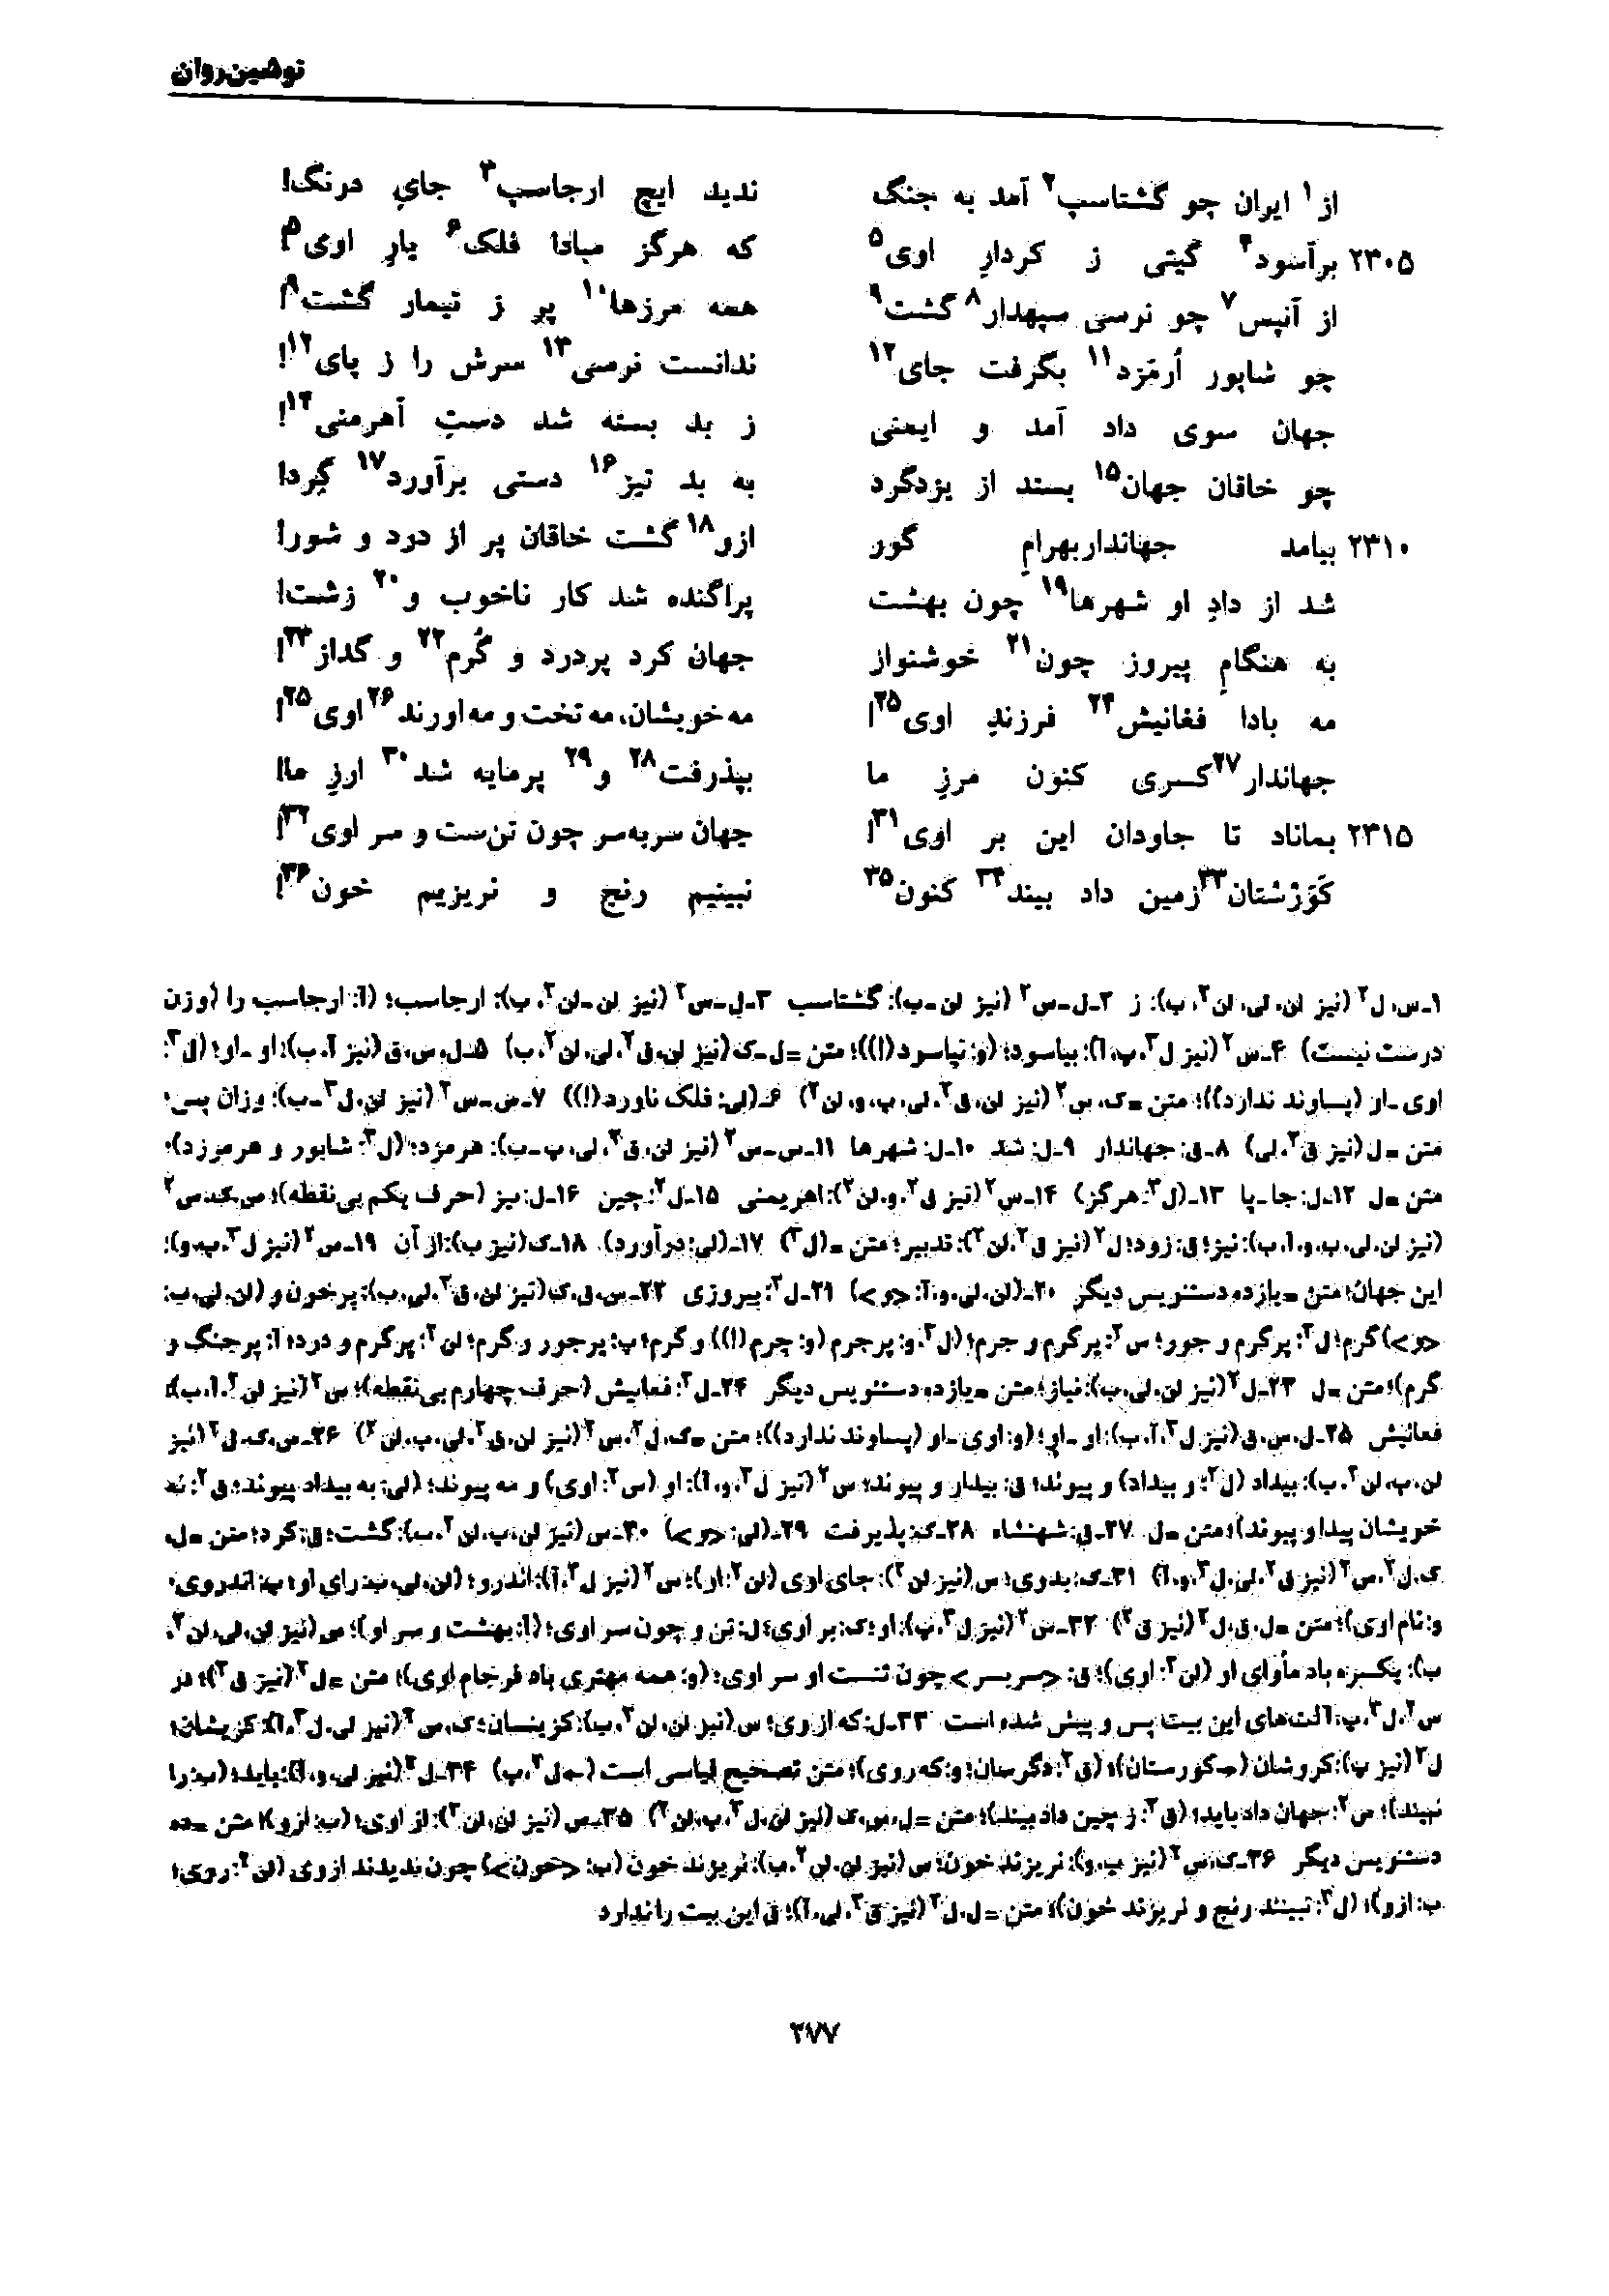 نوشین‌روان
از۱ ایران چو گشتاسپ۲ آمد به جنگ ندید ایچ ارجاسپ۳ جایِ درنگ!
۲۳۰۵ برآسود۴ گیتی ز کردارِ اوی۵ که هرگز مبادا فلک۶ یارِ اوی۵!
از آنپس۷ چو نرسی سپهدار۸ گشت۹ همه مرزها۱۰ پر ز تیمار گشت۹!
چو شاپور اُرمَزد۱۱ بگرفت جای۱۲ ندانست نرسی۱۳ سرش را ز پای۱۲!
جهان سوی داد آمد و ایمنی ز بد بسته شد دستِ آهرمنی۱۴!
چو خاقان جهان۱۵ بستد از یزدگرد به بد تیز۱۶ دستی برآورد۱۷ گِرد!
۲۳۱۰ بیامد جهاندار بهرامِ گور ازو۱۸ گشت خاقان پر از درد و شور!
شد از دادِ او شهرها۱۹ چون بهشت پراگنده شد کار ناخوب و۲۰ زشت!
به هنگامِ پیروز چون۲۱ خوشنواز جهان کرد پردرد و گُرم۲۲ و گداز۲۳!
مه بادا فغانیش۲۴ فرزندِ اوی۲۵! مه خویشان، مه تخت و مه اورند۲۶ اوی۲۵!
جهاندار۲۷ کسری کنون مرزِ ما بپذرفت۲۸ و۲۹ پرمایه شد۳۰ ارزِ ما!
۲۳۱۵ بماناد تا جاودان این بر اوی۳۱! جهان سربه‌سر چون تن‌ست و سر اوی۳۲!
کَوَژستان۳۳ زمین داد بیند۳۴ کنون۳۵ نبینیم رنج و نریزیم خون۳۶!
۱ـ س، ل۲ (نیز لن، لی، لن۲، ب): ز ۲ـ ل ـ س۲ (نیز لن ـ ب): گشتاسب ۳ـ ل ـ س۲ (نیز لن ـ لن۲، ب): ارجاسب؛ (آ: ارجاسب را (وزن
درست نیست) ۴ـ س۲ (نیز ل۳، پ، آ): بیاسود؛ (و: نپاسود(!))؛ متن = ل ـ ک (نیز لن، ق۲، لی، لن۲، ب) ۵ـ ل، س، ق (نیز آ، ب): او ـ او؛ (ل۳:
اوی ـ ار (پساوند ندارد))؛ متن = ک، س۲ (نیز لن، ق۲، لی، پ، و، لن۲) ۶ـ (لی: فلک ناورد(!)) ۷ـ س ـ س۲ (نیز لن، ل۳ ـ ب): وزان پس؛
متن = ل (نیز ق۲، لی) ۸ـ ق: جهاندار ۹ـ ل: شد ۱۰ـ ل: شهرها ۱۱ـ س ـ س۲ (نیز لن، ق۲، لی، پ ـ ب): هرمزد؛ (ل۳: شاپور و هرمزد)؛
متن = ل ۱۲ـ ل: جا ـ پا ۱۳ـ (ل۳: هرگز) ۱۴ـ س۲ (نیز ق۲، و، لن۲): اهریمنی ۱۵ـ ل۲: چین ۱۶ـ ل: ىیز (حرف یکم بی‌نقطه)؛ س، ک، س۲
(نیز لن، لی، پ، و، آ، ب): نیز؛ ق: زود؛ ل۲ (نیز ق۲، لن۲): تدبیر؛ متن = (ل۳) ۱۷ـ (لی: درآورد) ۱۸ـ ک (نیز ب): از آن ۱۹ـ س۲ (نیز ل۳، پ، و):
این جهان؛ متن = یازده دستنویس دیگر ۲۰ـ (لن، لی، و، آ: <و>) ۲۱ـ ل۲: پیروزی ۲۲ـ س، ق، ک (نیز لن، ق۲، لی، ب): پرخون و (لن، لی، ب:
<و>) گرم؛ ل۲: پرگرم و جور؛ س۲: پرگرم و جرم؛ (ل۳، و: پرجرم (و: چرم(!)) و گرم؛ پ: پرجور و گرم؛ لن۲: پرگرم و درد؛ آ: پرجنگ و
گرم)؛ متن = ل ۲۳ـ ل۲ (نیز لن، لی، ب): نیاز؛ متن = یازده دستنویس دیگر ۲۴ـ ل۲: فعایش (حرف چهارم بی‌نقطه)؛ س۲ (نیز لن۲، آ، ب):
فعانیش ۲۵ـ ل، س، ق (نیز ل۳، آ، ب): او ـ او؛ (و: اوی ـ او (پساوند ندارد))؛ متن = ک، ل۲، س۲ (نیز لن، ق۲، لی، پ، لن۲) ۲۶ـ س، ک، ل۲ (نیز
لن، پ، لن۲، ب): بیداد (ل۲: و بیداد) و پیوند؛ ق: بیدار و پیوند؛ س۲ (نیز ل۳، و، آ): او (س۲: اوی) و مه پیوند؛ (لی: به بیداد پیوند؛ ق۲: نه
خویشان پیدا و پیوند)؛ متن = ل ۲۷ـ ق: شهنشاه ۲۸ـ ک: پذیرفت ۲۹ـ (لی: <و>) ۳۰ـ س (نیز لن، پ، لن۲، ب): گشت؛ ق: کرد؛ متن = ل،
ک، ل۲، س۲ (نیز ق۲، لی، ل۳، و، آ) ۳۱ـ ک: بدوی؛ س (نیز لن۲): جای اوی (لن۲: او)؛ س۲ (نیز ل۳، آ): اندرو؛ (لن، لی، ب: رای او؛ پ: اندروی؛
و: نام اوی)؛ متن = ل، ق، ل۲ (نیز ق۲) ۳۲ـ س۲ (نیز ل۳، پ): او؛ ک: بر اوی؛ ل: تن و چون سر اوی؛ (آ: بهشت و سر او)؛ س (نیز لن، لی، لن۲،
ب): یکسره باد مأوای او (لن۲: اوی)؛ ق: <سربسر> چون تنست او سر اوی؛ (و: همه مهتری باد فرجام اوی)؛ متن = ل۲ (نیز ق۲)؛ در
س۲، ل۳، پ، آ لت‌های این بیت پس و پیش شده است ۳۳ـ ل: که از وی؛ س (نیز لن، لن۲، ب): کزینسان؛ ک، س۲ (نیز لی، ل۳، آ): کزیشان؛
ل۲ (نیز پ): کروشان (← کورستان)؛ (ق۲: دگرسان؛ و: که روی)؛ متن تصحیح قیاسی است (← ل۲، پ) ۳۴ـ ل۲ (نیز لی، و، آ): باید؛ (ب: را
نبیند)؛ س۲: جهان داد باید؛ (ق۲: ز چین داد بیند)؛ متن = ل، س، ک (نیز لن، ل۳، پ، لن۲) ۳۵ـ س (نیز لن، لن۲): از اوی؛ (ب: ازو)؛ متن = ده
دستنویس دیگر ۳۶ـ ک، س۲ (نیز پ، و): نریزند خون؛ س (نیز لن، لن۲، ب): نریزند خون (ب: <خون>) چون ندیدند از وی (لن۲: روی؛
ب: ازو)؛ (ل۳: نبینند رنج و نریزند خون)؛ متن = ل، ل۲ (نیز ق۲، لی، آ)؛ ق این بیت را ندارد
۲۷۷